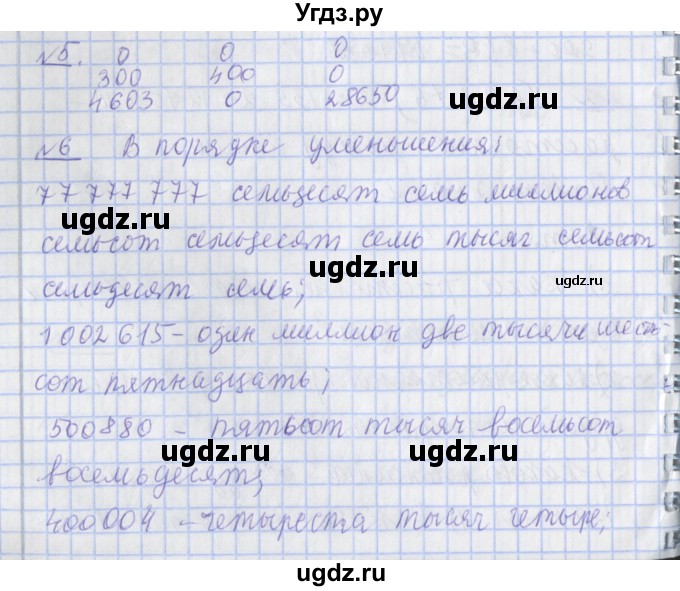 Угдз.ру
№5. 0 0 0
300 400 0
4603 0 28650
ugdz.ru
№6 В порядке уменьшения:
77 777 777 семьдесят семь миллионов
ugdz.ru ugdz.ru
семьсот семьдесят семь тысяч семьсот
ugdz.ru
ugdz.ru
семьдесят семь;
1002615 – один миллион две тысячи шест-
ugdz.ru
сот пятнадцать;
500880 – пятьсот тысяч восемьсот
ugdz.ru ugdz.ru
восемьдесят;
400004 – четыреста тысяч четыре;
ugdz.ru
ugdz.ru